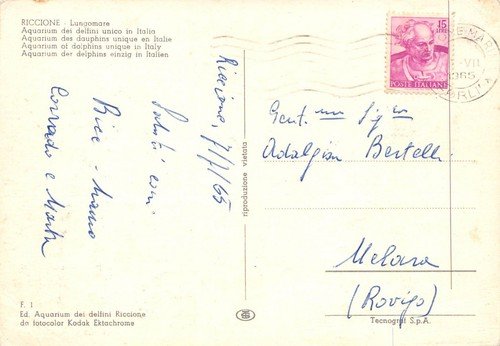 RICCIONE - Lungomare
Aquarium dei delfini unico in Italia
Aquarium des dauphins unique en Italie
Aquarium of dolphins unique in Italy
Aquarium der delphins einzig in Italien
Riccione, 7/7/65
Saluti
Bice -
Corrado e
F. 1
Ed. Aquarium dei delfini Riccione
da fotocolor Kodak Ektachrome
riproduzione vietata
15
LIRE
POSTE ITALIANE
1965
Gent. Sig.
Adalgisa Bertelli
Melara
(Rovigo)
Tecnograf S.p.A.